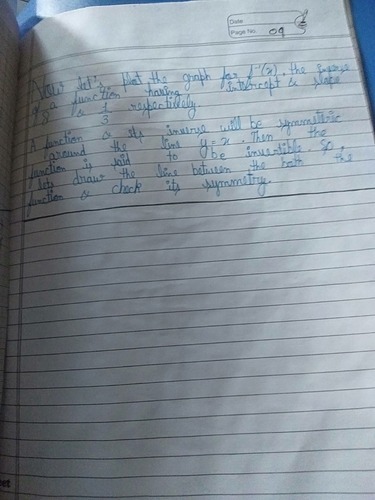 Date
Page No. 09
Now let's plot the graph for f⁻¹(x), the inverse
of a function having intercept & slope
8 & 1/3 respectively.
A function & its inverse will be symmetric
around the line y = x. Then the
function is said to be invertible. So,
lets draw the line between the both the
function & check its symmetry.